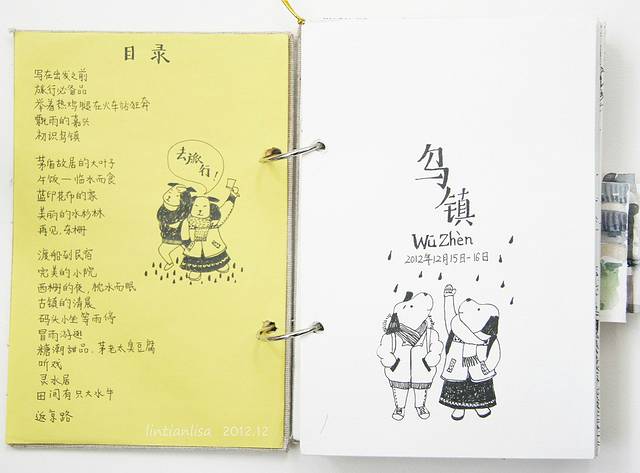 目录
写在出发之前
旅行必备品
举着热鸡腿在火车站狂奔
飘雨的嘉兴
初识乌镇
茅盾故居的大叶子
午饭一临水而食
蓝印花布的家
美丽的水杉林
再见，东栅
渡船到民宿
完美的小院
西栅的夜，枕水而眠
古镇的清晨
码头小坐等雨停
冒雨游逛
糖潮甜品、茅老太臭豆腐
听戏
灵水居
田间有只大水牛
返京路
去旅行！
lintianlisa 2012.12
乌镇
WūZhèn
2012年12月15日-16日